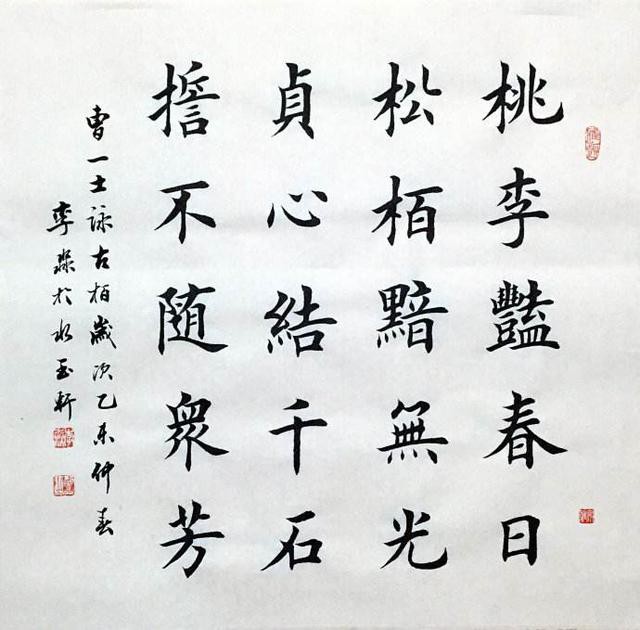 桃李豔春日
松栢黯無光
貞心結千石
擔不隨衆芳
曹一士詠古栢歲次乙未仲春
李淼於水玉軒